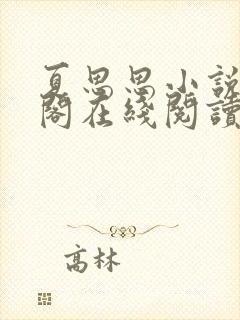 夏思思小說
閣在綫閱讀
高林